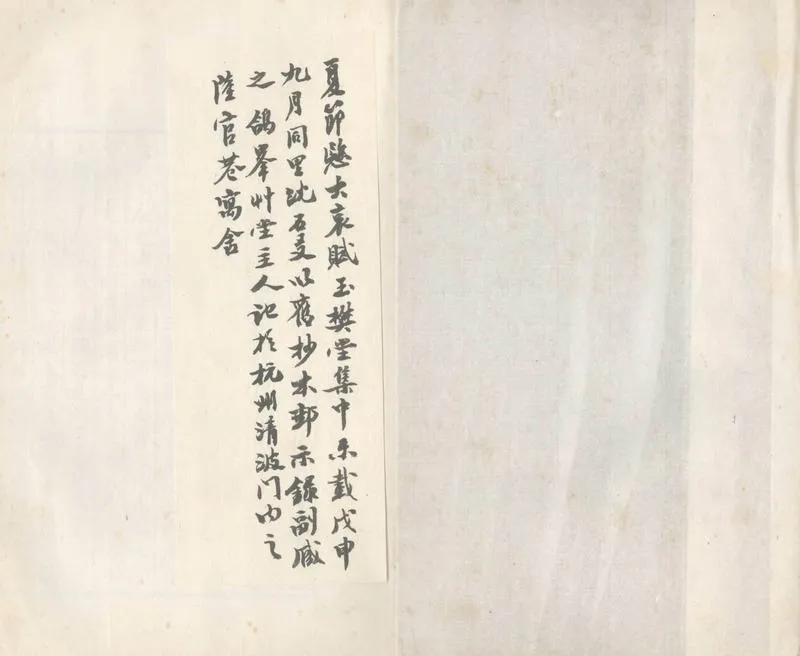 夏節愍大哀賦玉樊堂集中未載戊申
九月同里沈石友以舊抄本郵示錄副臧
之 鴿峯艸堂主人記於杭州清波门内之
陸官巷寓舍